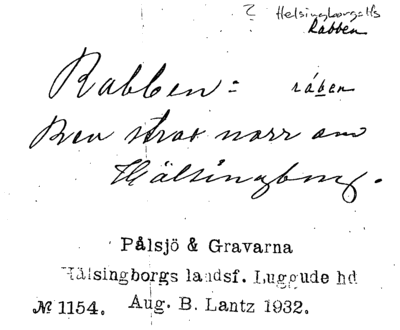 ? Helsingborgs lfs
Rabben
Rabben = råben
Reva strax norr om
Hälsingborg.
Pålsjö & Gravarna
Hälsingborgs landsf. Luggude hd
№ 1154. Aug. B. Lantz 1932.